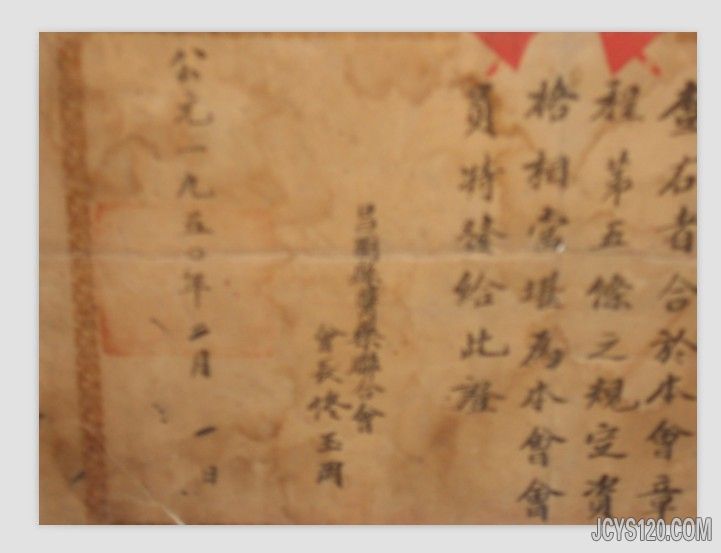 查右者合於本會章
程第五條之規定資
格相當堪為本會會
員特發給此證
醫藥聯合會
會長佟玉
公元一九五〇年二月一日
JCYS120.COM